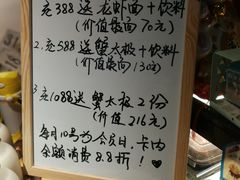 充388送龙虾面+饮料
(价值最高70元)
2.充588送蟹太极+饮料
(价值最高130元)
3.充1088送蟹太极2份
(价值216元)
每月10号为会员日,卡内
余额消费8.8折!